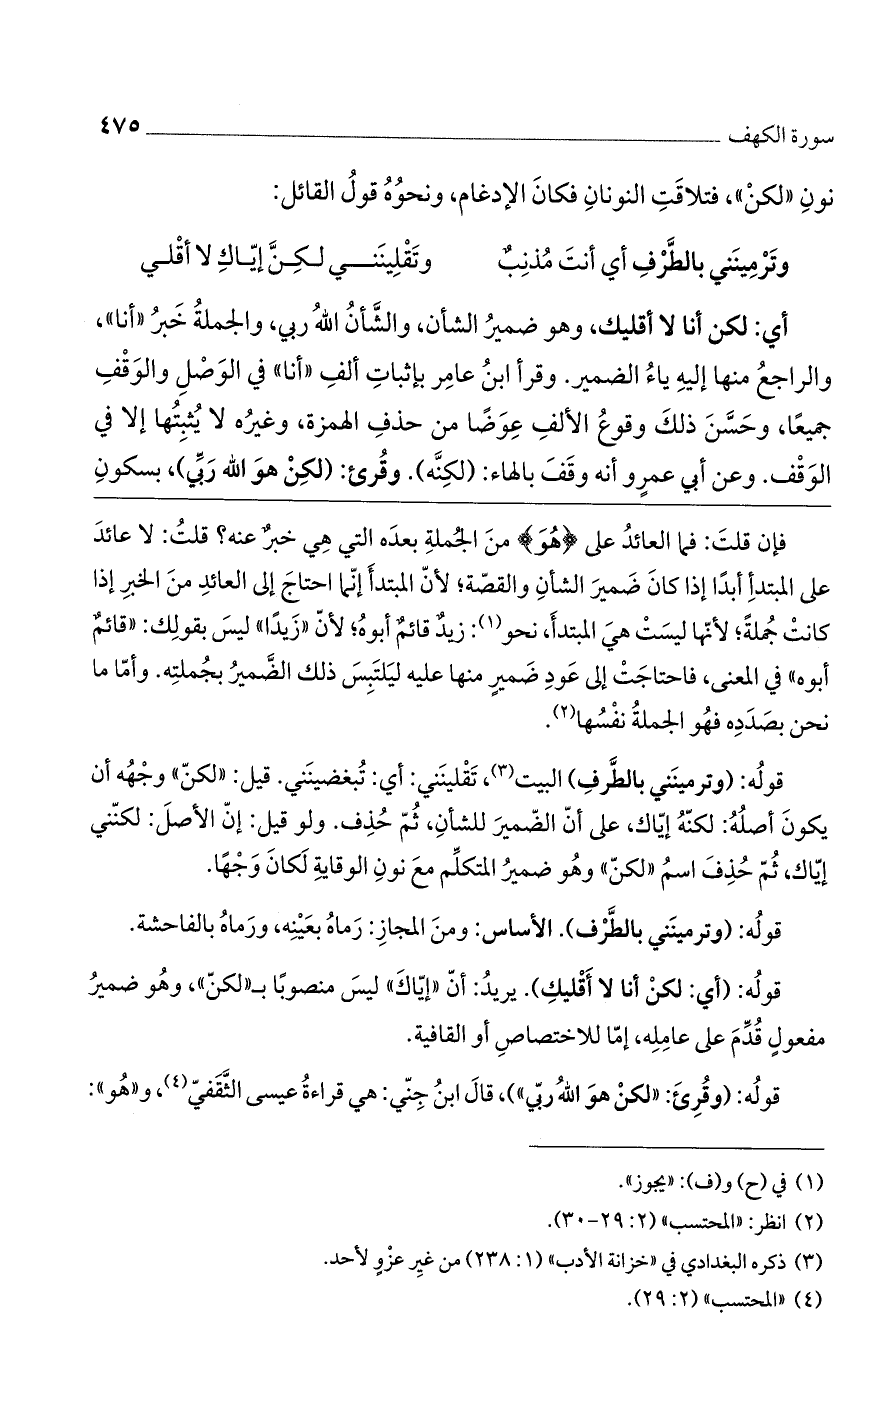 سورة الكهف ٤٧٥
نونِ «لكنْ»، فتلاقَتِ النونانِ فكانَ الإدغام، ونحوُهُ قولُ القائل:
وتَرْمِينَني بالطَّرْفِ أي أنتَ مُذنِبٌ وتَقْلِينَنـــي لـكِـنَّ إيّـاكِ لا أَقْلـي
أي: لكن أنا لا أقليك، وهو ضميرُ الشأن، والشَّأنُ اللهُ ربي، والجملةُ خَبرُ «أنا»،
والراجعُ منها إليهِ ياءُ الضمير. وقرأ ابنُ عامِر بإثباتِ ألفِ «أنا» في الوَصْلِ والوَقْفِ
جميعًا، وحَسَّنَ ذلكَ وقوعُ الألفِ عِوَضًا من حذفِ الهمزة، وغيرُه لا يُثبِتُها إلا في
الوَقْف. وعن أبي عمرٍو أنه وقَفَ بالهاء: (لكِنَّه). وقُرئ: (لكِنْ هوَ الله رَبِّي)، بسكونِ
فإن قلتَ: فما العائدُ على ﴿هُوَ﴾ منَ الجُملةِ بعدَه التي هِي خبرٌ عنه؟ قلتُ: لا عائدَ
على المبتدأِ أبدًا إذا كانَ ضَميرَ الشأنِ والقصّة؛ لأنّ المبتدأَ إنّما احتاجَ إلى العائدِ منَ الخبرِ إذا
كانتْ جُملةً؛ لأنّها ليسَتْ هيَ المبتدأَ، نحو(١): زيدٌ قائمٌ أبوهُ؛ لأنّ «زَيدًا» ليسَ بقولِك: «قائمٌ
أبوه» في المعنى، فاحتاجَتْ إلى عَودِ ضَميرٍ منها عليه ليَلتَبِسَ ذلك الضَّميرُ بجُملتِه. وأمّا ما
نحن بصَدَدِه فهُو الجملةُ نفْسُها(٢).
قولُه: (وترمينَني بالطَّرفِ) البيت(٣)، تَقْلينَني: أي: تُبغضينَني. قيل: «لكنّ» وجْهُه أن
يكونَ أصلُهُ: لكنّهُ إيّاك، على أنّ الضّميرَ للشأنِ، ثُمّ حُذِف. ولو قيل: إنّ الأصلَ: لكنّني
إيّاك، ثُمّ حُذِفَ اسمُ «لكنّ» وهُو ضميرُ المتكلِّم معَ نونِ الوقايةِ لَكانَ وَجْهًا.
قولُه: (وترمينَني بالطَّرْف). الأساس: ومنَ المجازِ: رَماهُ بعَيْنِه، ورَماهُ بالفاحشة.
قولُه: (أي: لكنْ أنا لا أَقْليكِ). يريدُ: أنّ «إيّاكَ» ليسَ منصوبًا بـ«لكنّ»، وهُو ضميرُ
مفعولٍ قُدِّمَ على عامِلِه، إمّا للاختصاصِ أو القافية.
قولُه: (وقُرِئَ: «لكنْ هوَ اللهُ ربّي»)، قالَ ابنُ جِنّي: هي قراءةُ عيسى الثَّقَفيّ(٤)، و«هُو»:
(١) في (ح) و(ف): «يجوز».
(٢) انظر: «المحتسب» (٢: ٢٩-٣٠).
(٣) ذكره البغدادي في «خزانة الأدب» (١: ٢٣٨) من غيرِ عزْوٍ لأحد.
(٤) «المحتسب» (٢: ٢٩).